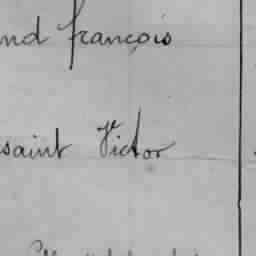 nd françois
saint Victor